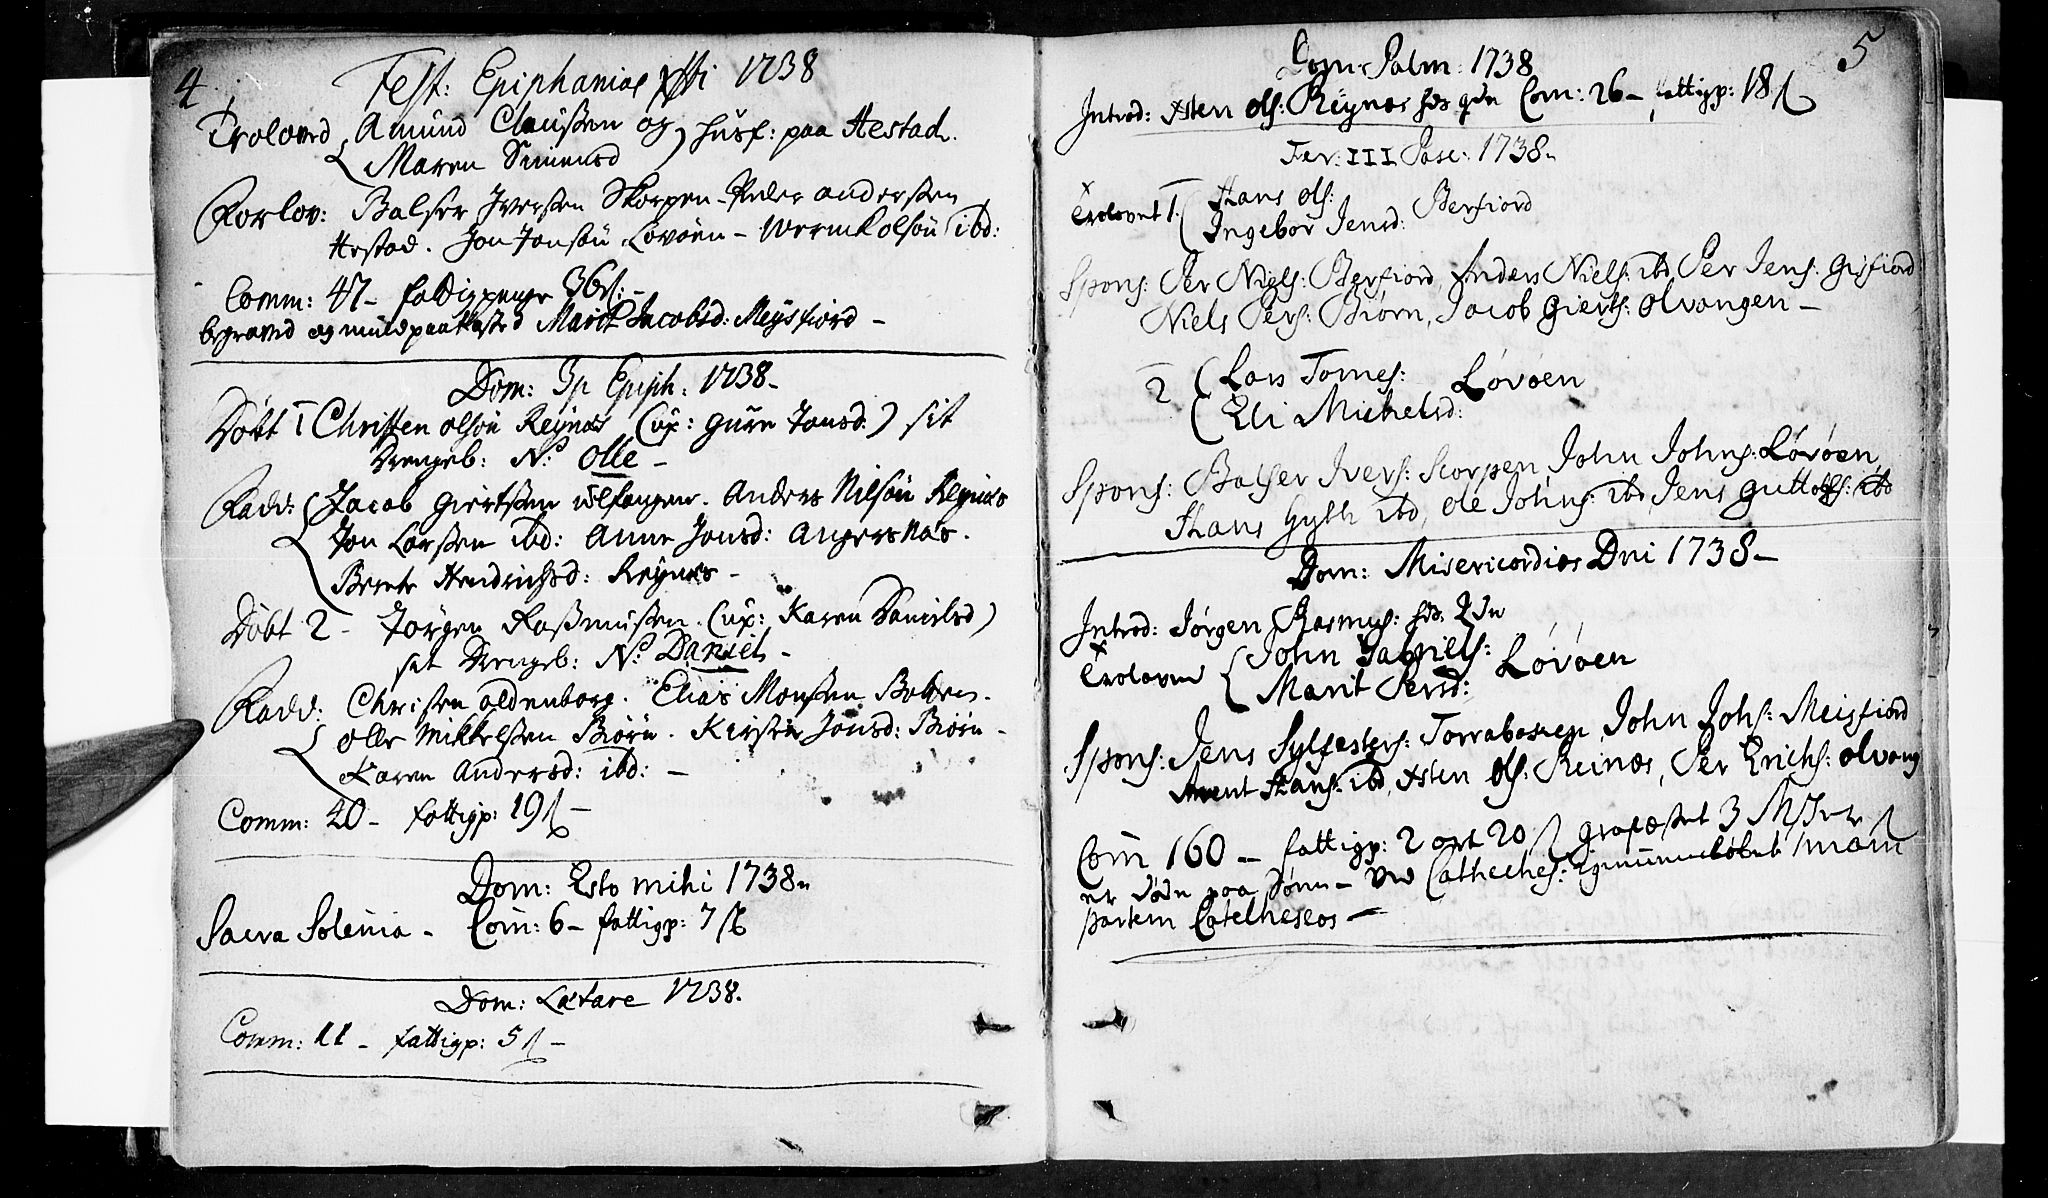 4
Fest: Epiphaniae Xsti 1738
Trolovvd Amund Claußen og
Maren Simensd husf: paa Hestad.
Forlov: Balser Iverßen Skorpen - Peder anderßen
Hestad. Jon Jonsön Lövöen - olsön ibd:
Comm: 47 - fattigpenge 36 ß: -
begravd og muld paakasted Marit Jacobsd: Meysfiord -
Dom: I p Epiph: 1738 -
Döbt 1 Christen olsön Reynes (ux: Guru Jonsd.) sit
Drengeb: N: Olle -
Fadd: Jacob Giertßen ölfangen. Anders Nilsön Reynes
Jon Larßen ibd: Anne Jonsd: Angersnes.
Berete Hendrichsd: Reynes -
Döbt 2 - Jörgen Raßmußen (ux: Karen Danielsd)
sit Drengeb: N: Daniel -
Fadd: Christen oldenborg. Elias Monßen
Olle Mikkelßen Biörn. Kirsten Jonsd: Biörn -
Karen Andersd: ibd: -
Comm: 20 - fattigp: 19 ß -
Dom: Esto mihi 1738
Sacra Solenia - Com: 6 - fattigp: 7 ß
Dom: Lætare 1738.
Comm: 11 - fattigp: 5 ß -
5
Dom: Palm: 1738
Introd: Xsten Ols: Reynes hs qvin Com: 26 - fattigp: 18 ß
Fer: III Pasc: 1738
Trolovet 1. Hans Ols:
Ingebor Jensd: Berfiord
Spons: Per Niels: Berfiord, Anders Niels: ibd, Per Jens: Gisfiord
Niels Pers: Biørn, Jacob Gierts: Olvangen -
2 Lars Tomes: Løvøen
Eli Michelsd:
Spons: Balser Ivers: Scorpen John Johns: Løvøen
Hans Gylle ibd, Ole Johns: ibd, Jens Guttols: ibd
Dom: Misericordias Dni 1738 -
Introd: Jørgen Rasmus: hs
Trolovede John Gabriels: Løvøen
Marit Persd:
Spons: Jens Sylfesters: John Johs: Meisfiord
Hans: ibd, Xsten Ols: Reines, Per Erichs: Olvang
Com 160 - fattigp: 2 ort 20 ß 3
paa - Catheches:
partem Catecheseos -